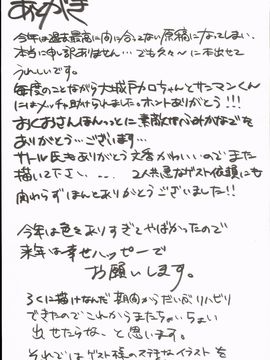 あとがき
今年は過去最高に間に合ってない原稿になってしまい、
本当に申し訳ありません…でも久々に本出せて
うれしいです。
毎度のことながら大城戸カロちゃんとサンマンくん
にはメッチャ助けられました。ホントありがとう!!!
おくおさんほんっとに素敵な
ありがとう…ございます…
サトル氏もありがとう文香かわいいのでまた
描いて下さい… 2人共急なゲスト依頼にも
関わらずほんとありがとうございました!!
今年は色々ありすぎてやばかったので
来年は幸せハッピーで
お願いします。
ろくに描けなんだ期間からだいぶリハビリ
できたのでこれからまたちょいちょい
出せたらな、と思います。
それではゲスト様のステキなイラストを